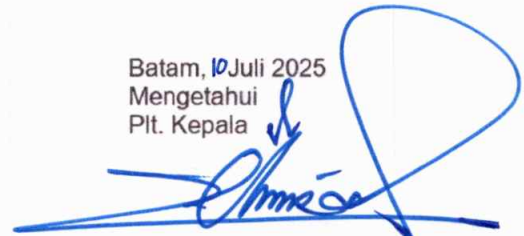 Batam, 10 Juli 2025
Mengetahui
Plt. Kepala